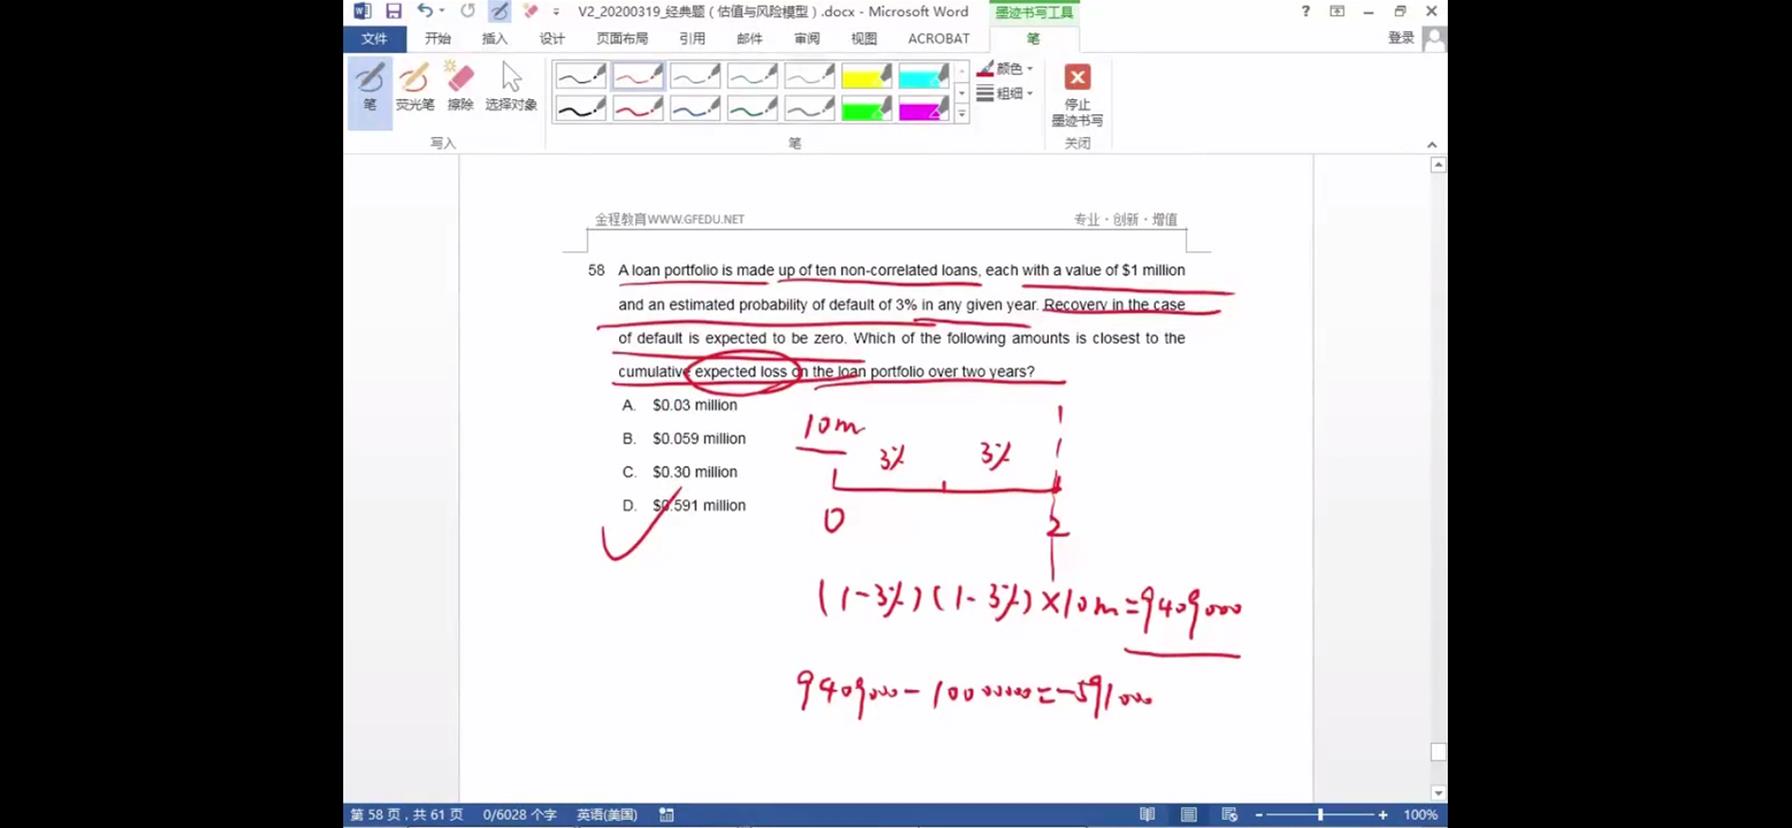 V2_20200319_经典题（估值与风险模型）.docx - Microsoft Word
墨迹书写工具
文件 开始 插入 设计 页面布局 引用 邮件 审阅 视图 ACROBAT 笔 登录
笔 荧光笔 擦除 选择对象 颜色 粗细 停止墨迹书写
写入 笔 关闭
金程教育WWW.GFEDU.NET 专业·创新·增值
58 A loan portfolio is made up of ten non-correlated loans, each with a value of $1 million
and an estimated probability of default of 3% in any given year. Recovery in the case
of default is expected to be zero. Which of the following amounts is closest to the
cumulative expected loss on the loan portfolio over two years?
A. $0.03 million
B. $0.059 million
C. $0.30 million
D. $0.591 million
10m
3% 3%
0 2
(1-3%)(1-3%)×10m=9409000
9409000-10000000=-591000
第 58 页，共 61 页 0/6028 个字 英语(美国) 100%